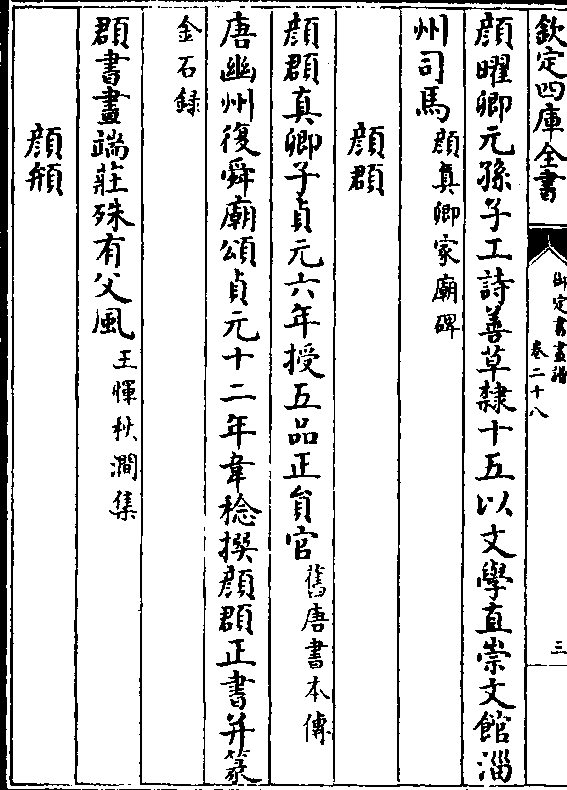 欽定四庫全書
御定書畫譜
卷二十八
三
顔曜卿元孫子工詩善草隸十五以文學直崇文館淄
州司馬顔真卿家廟碑
顔頵
顔頵真卿子貞元六年授五品正員官舊唐書本傳
唐幽州復舜廟頌貞元十二年韋稔撰顔頵正書并篆
金石録
頵書畫端莊殊有父風王惲秋澗集
顔頩